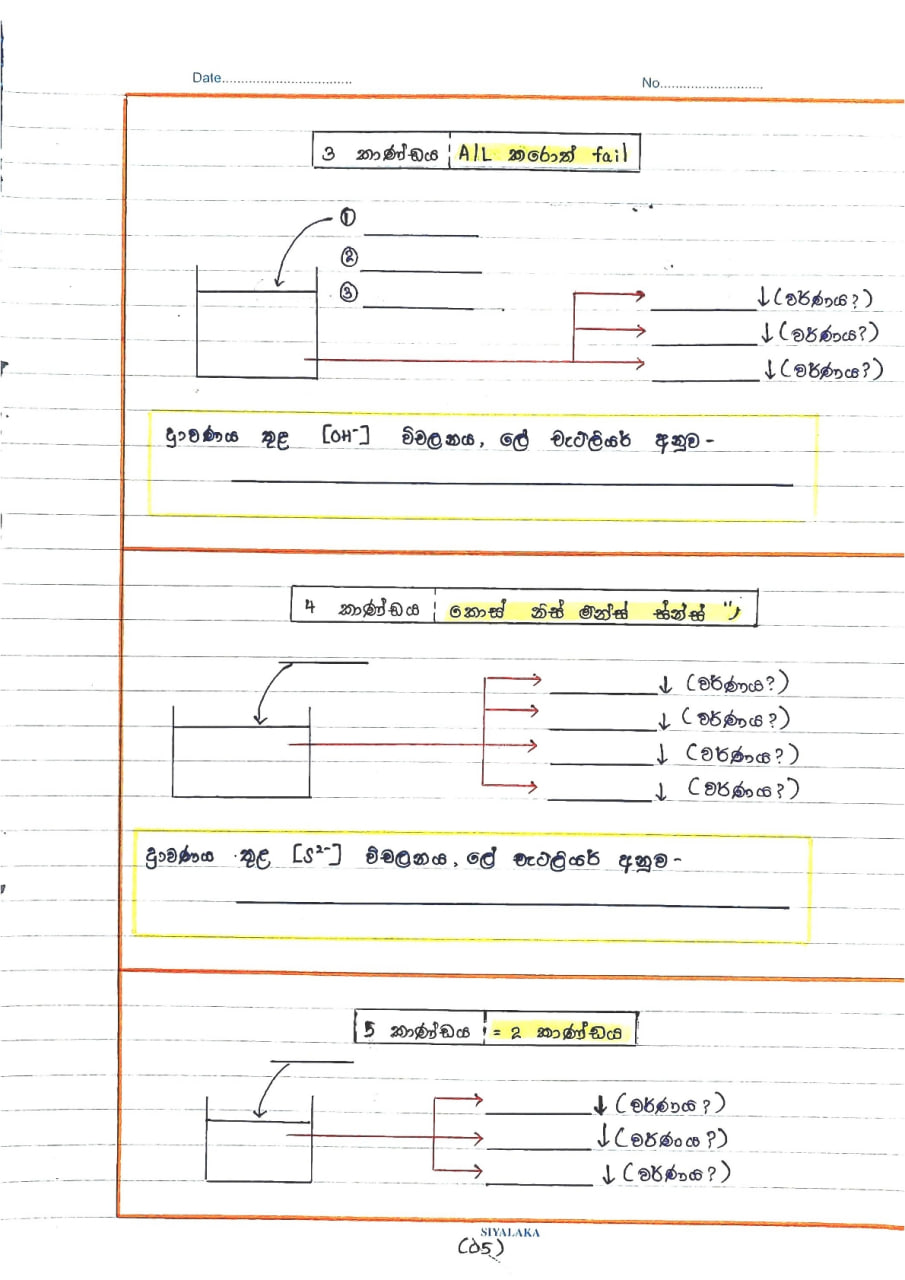 Date................................. No...........................
3 කාණ්ඩය A/L කරොත් fail
①
②
③
↓(වර්ණය?)
↓(වර්ණය?)
↓(වර්ණය?)
ද්‍රාවණය තුළ [OH⁻] විචලනය, ලේ චැටලියර් අනුව -
4 කාණ්ඩය කොස් නිස් මන්ස් ස්න්ස්
↓ (වර්ණය?)
↓ (වර්ණය?)
↓ (වර්ණය?)
↓ (වර්ණය?)
ද්‍රාවණය තුළ [S²⁻] විචලනය, ලේ චැටලියර් අනුව -
5 කාණ්ඩය = 2 කාණ්ඩය
↓ (වර්ණය?)
↓ (වර්ණය?)
↓ (වර්ණය?)
SIYALAKA
(05)